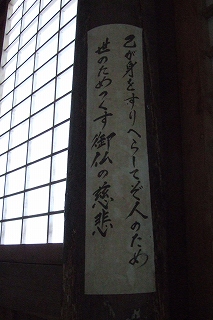 己が身をすりへらしてぞ人のため
世のためつくす御仏の慈悲